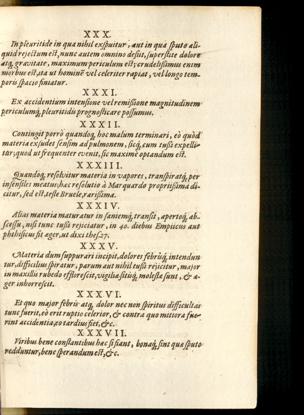 XXX.
In pleuritide in qua nihil expuitur, aut in qua sputo ali-
quid reiectum est, nunc autem omnino desiit, superstite dolore
atq; grauitate, maximum periculum est; crudelissimus enim
morbus est, ita ut hominē vel celeriter rapiat, vel longo tem-
poris spacio finiatur.
XXXI.
Ex accidentium intensione vel remissione magnitudinem
periculumq; pleuritidis prognosticare possumus.
XXXII.
Contingit porrò quandoq; hoc malum terminari, eò quòd
materia exsudet sensim ad pulmonem, sicq; cum tussi expelli-
tur, quod ut frequenter euenit, sic maxime optandum est.
XXXIII.
Quandoq; resoluitur materia in vapores, transpiratq; per
insensiles meatus, hæc resolutio à Marquardo propriissima di-
citur, sed est, teste Bruele, rarissima.
XXXIV.
Alias materia maturatur in saniemq; transit, apertoq; ab-
scessu, nisi tunc tussi reijciatur, in 40. diebus Empiicus aut
phthisicus fit æger, ut dixi thes. 27.
XXXV.
Materia dum suppurari incipit, dolores febrisq; intendun-
tur, difficilius spiratur, parum aut nihil tussi reijcitur, major
in maxillis rubedo efflorescit, vigilia sitisq; molestæ sunt, & æ-
ger inhorrescit.
XXXVI.
Et quo major febris atq; dolor nec non spiritus difficultas
tunc fuerit, eò erit ruptio celerior, & contra quo mitiora fue-
rint accidentia, eo tardius fiet, &c.
XXXVII.
Viribus bene constantibus hæc si fiant, bonaq; sint quæ sputo
redduntur, bene sperandum est, &c.